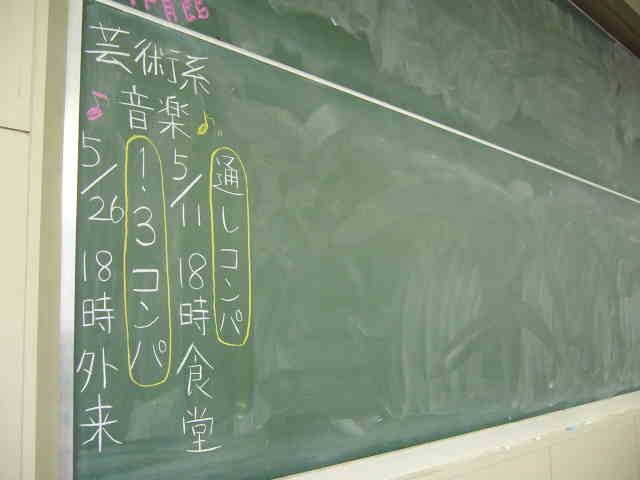 芸術系
音楽
通しコンパ
5/11 18時食堂
1.3コンパ
5/26 18時外来